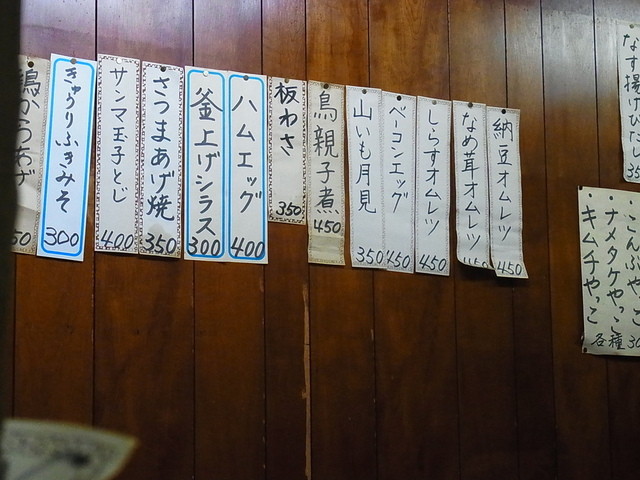 なす揚げびた
35
こんぶやっこ
・ナメタケやっこ
・キムチやっこ
各種30
納豆オムレツ
450
なめ茸オムレツ
しらすオムレツ
450
ベーコンエッグ
450
山いも月見
350
鳥親子煮
450
板わさ
350
ハムエッグ
400
釜上げシラス
300
さつまあげ焼
350
サンマ玉子とじ
400
きゅうりふきみそ
300
鶏からあげ
50